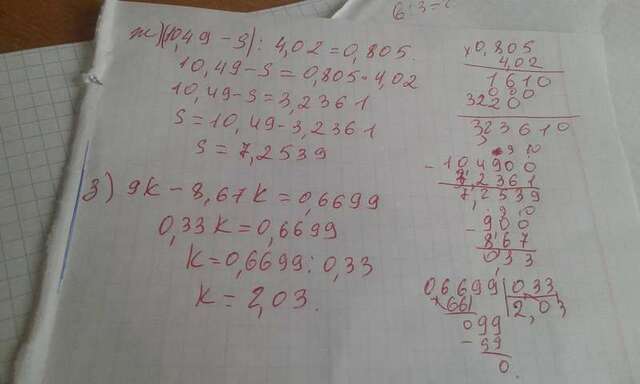 6:3=
ж)(10,49-S):4,02=0,805.
10,49-S=0,805·4,02
10,49-S=3,2361
S=10,49-3,2361
S=7,2539
з) 9K-8,67K=0,6699
0,33K=0,6699
K=0,6699:0,33
K=2,03.
×0,805
4,02
1610
000
3220
323610
-10,4900
3,2361
7,2539
-900
867
033
0,6699 0,33
66 2,03
099
-99
0